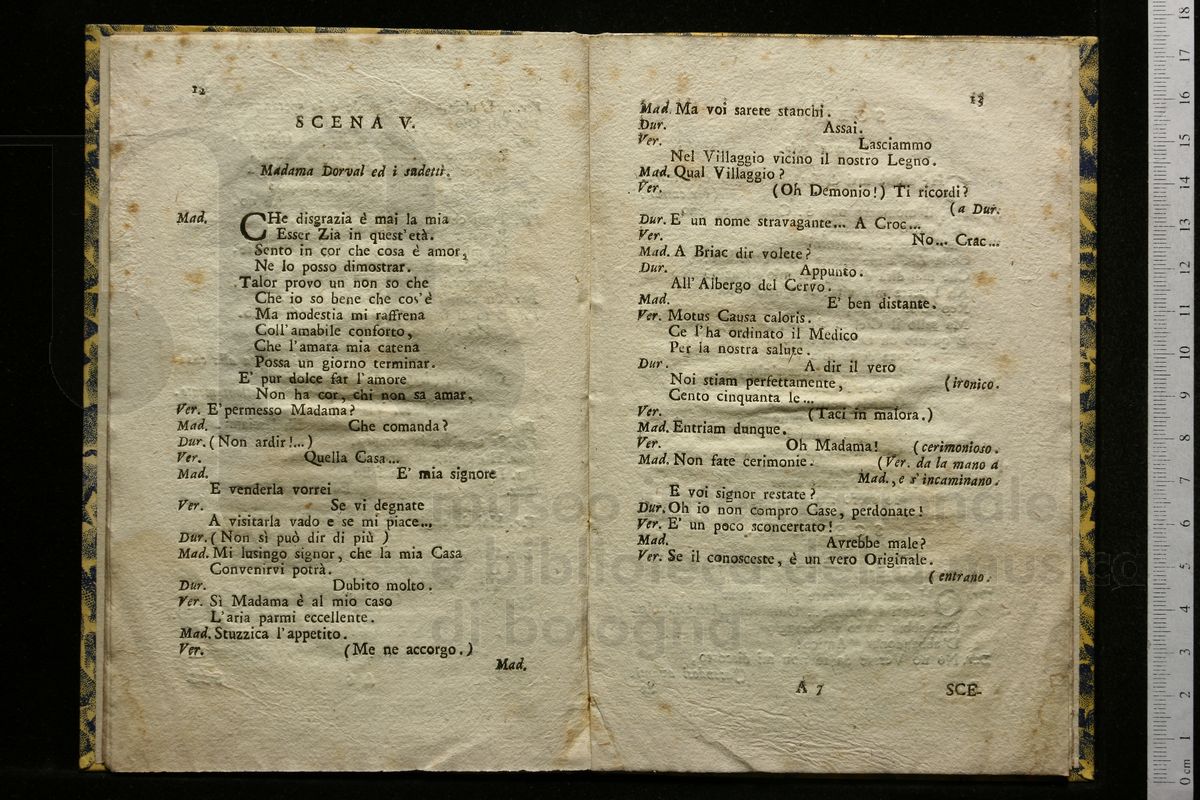 12
SCENA V.
Madama Dorval ed i sudetti.
Mad. CHe disgrazia è mai la mia
Esser Zia in quest' età.
Sento in cor che cosa è amor,
Ne lo posso dimostrar.
Talor provo un non so che
Che io so bene che cos'è
Ma modestia mi raffrena
Coll' amabile conforto,
Che l'amara mia catena
Possa un giorno terminar.
E' pur dolce far l'amore
Non ha cor, chi non sa amar.
Ver. E' permesso Madama?
Mad. Che comanda?
Dur. (Non ardir!...)
Ver. Quella Casa...
Mad. E' mia signore
E venderla vorrei
Ver. Se vi degnate
A visitarla vado e se mi piace...
Dur. (Non si può dir di più )
Mad. Mi lusingo signor, che la mia Casa
Convenirvi potrà.
Dur. Dubito molto.
Ver. Sì Madama è al mio caso
L'aria parmi eccellente.
Mad. Stuzzica l'appetito.
Ver. (Me ne accorgo.)
Mad.
13
Mad. Ma voi sarete stanchi.
Dur. Assai.
Ver. Lasciammo
Nel Villaggio vicino il nostro Legno.
Mad. Qual Villaggio?
Ver. (Oh Demonio!) Ti ricordi?
(a Dur.
Dur. E' un nome stravagante... A Croc...
Ver. No... Crac...
Mad. A Briac dir volete?
Dur. Appunto.
All' Albergo del Cervo.
Mad. E' ben distante.
Ver. Motus Causa caloris.
Ce l'ha ordinato il Medico
Per la nostra salute.
Dur. A dir il vero
Noi stiam perfettamente, (ironico.
Cento cinquanta le...
Ver. (Taci in malora.)
Mad. Entriam dunque.
Ver. Oh Madama! (cerimonioso.
Mad. Non fate cerimonie. (Ver. da la mano a
Mad., e s' incaminano.
E voi signor restate?
Dur. Oh io non compro Case, perdonate!
Ver. E' un poco sconcertato!
Mad. Avrebbe male?
Ver. Se il conosceste, è un vero Originale.
(entrano.
A 7 SCE-